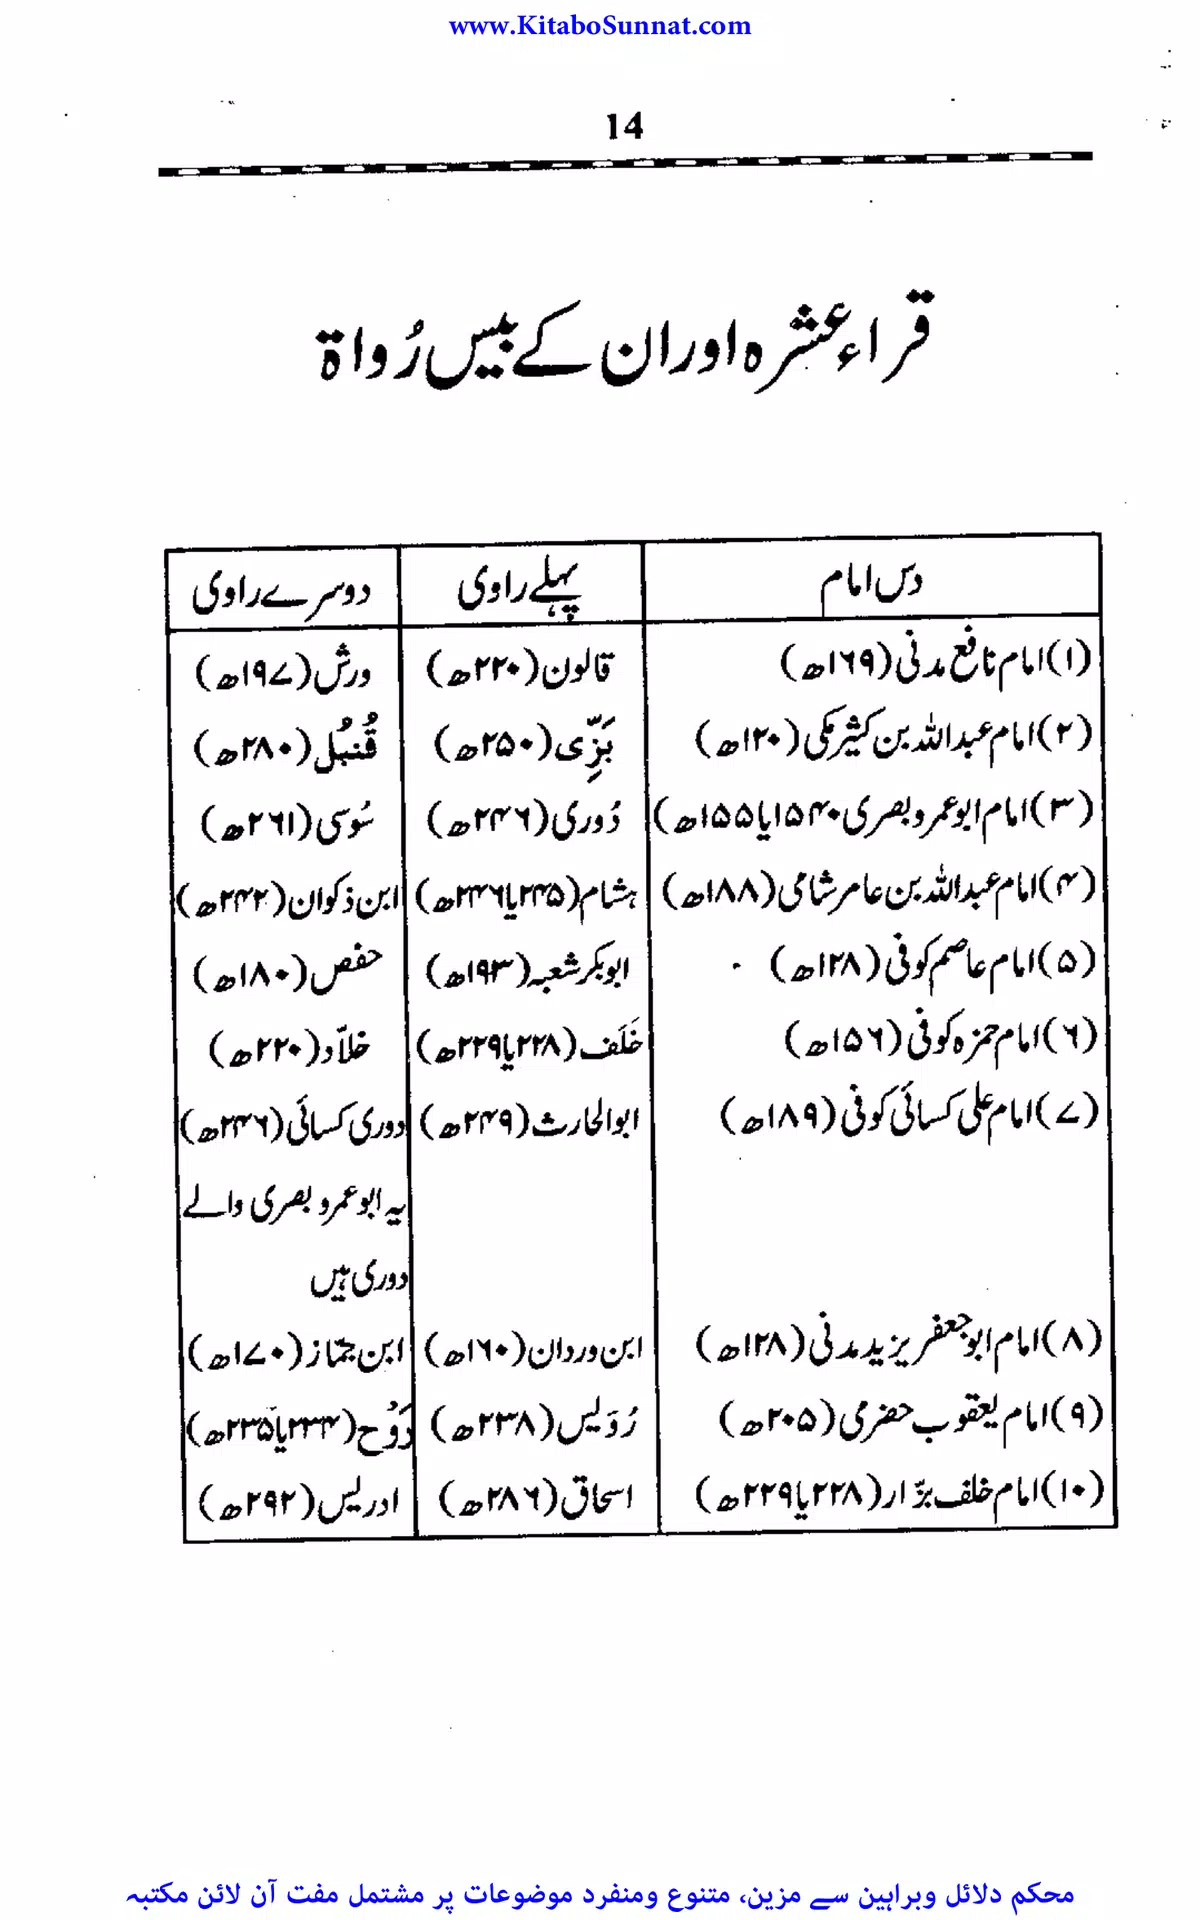 www.KitaboSunnat.com
14
قراء عشرہ اور ان کے بیس رُواۃ
دس امام پہلے راوی دوسرے راوی
(۱) امام نافع مدنی (۱۶۹ھ) قالون (۲۲۰ھ) ورش (۱۹۷ھ)
(۲) امام عبداللہ بن کثیر مکی (۱۲۰ھ) بَزِّی (۲۵۰ھ) قُنبُل (۲۸۰ھ)
(۳) امام ابوعمرو بصری ۱۵۴۰یا۱۵۵ھ) دُوری (۲۴۶ھ) سُوسی (۲۶۱ھ)
(۴) امام عبداللہ بن عامر شامی (۱۸۸ھ) ہشام (۲۴۵یا۲۴۶ھ) ابن ذکوان (۲۴۲ھ)
(۵) امام عاصم کوفی (۱۲۸ھ) ابوبکر شعبہ (۱۹۳ھ) حفص (۱۸۰ھ)
(۶) امام حمزہ کوفی (۱۵۶ھ) خَلَف (۲۲۸یا۲۲۹ھ) خلاّد (۲۲۰ھ)
(۷) امام علی کسائی کوفی (۱۸۹ھ) ابوالحارث (۲۴۹ھ) دوری کسائی (۲۴۶ھ)
یہ ابوعمرو بصری والے
دوری ہیں
(۸) امام ابوجعفر یزید مدنی (۱۲۸ھ) ابن وردان (۱۶۰ھ) ابن جمّاز (۱۷۰ھ)
(۹) امام یعقوب حضرمی (۲۰۵ھ) رُوَیس (۲۳۸ھ) رَوْح (۲۳۴یا۲۳۵ھ)
(۱۰) امام خلف بزّار (۲۲۸یا۲۲۹ھ) اسحاق (۲۸۶ھ) ادریس (۲۹۲ھ)
محکم دلائل وبراہین سے مزین، متنوع ومنفرد موضوعات پر مشتمل مفت آن لائن مکتبہ